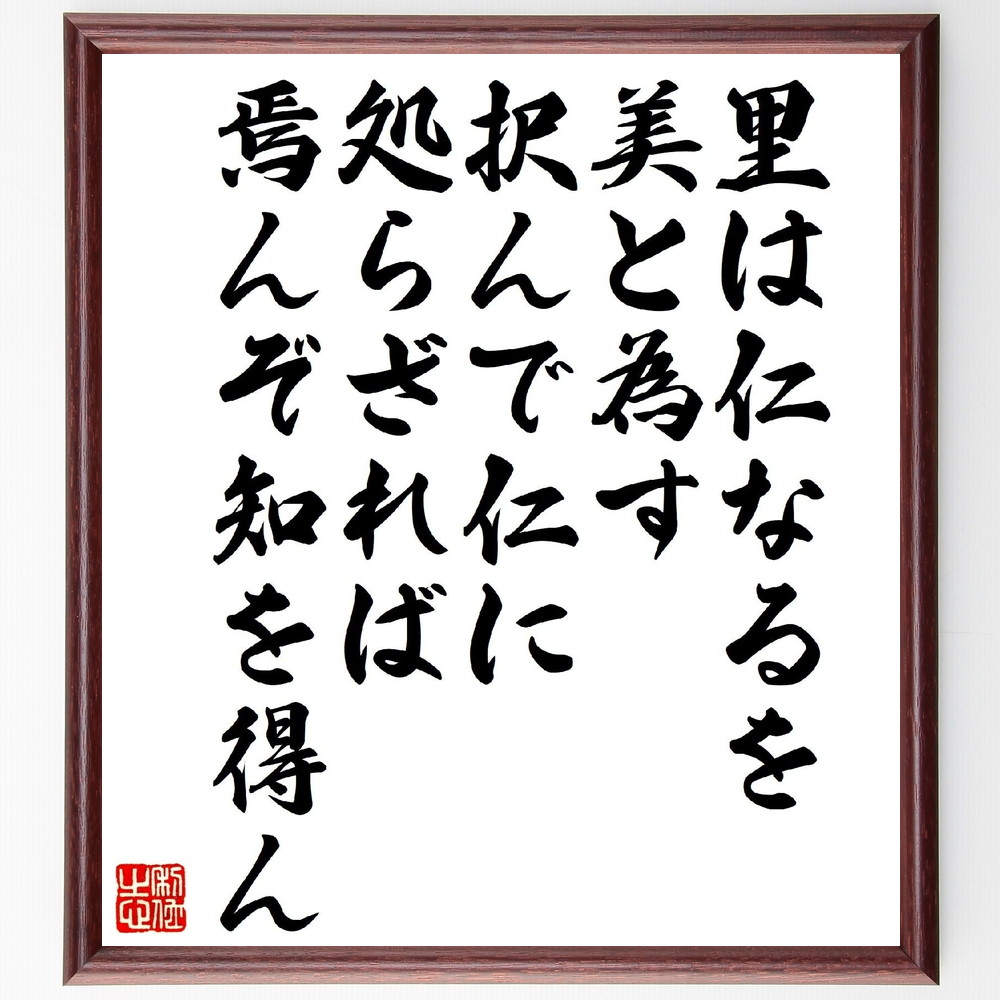 里は仁なるを
美と為す
択んで仁に
処らざれば
焉んぞ知を得ん